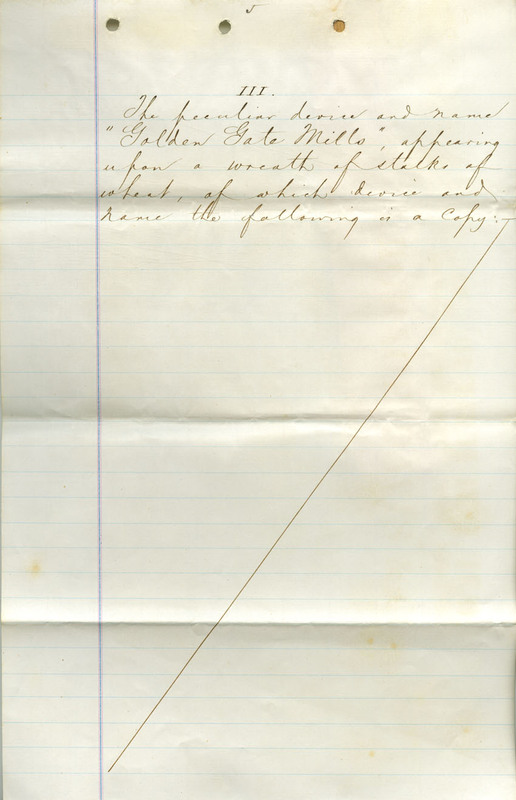 5
III.
The peculiar device and name
"Golden Gate Mills", appearing
upon a wreath of stalks of
wheat, of which device and
name the following is a copy:—